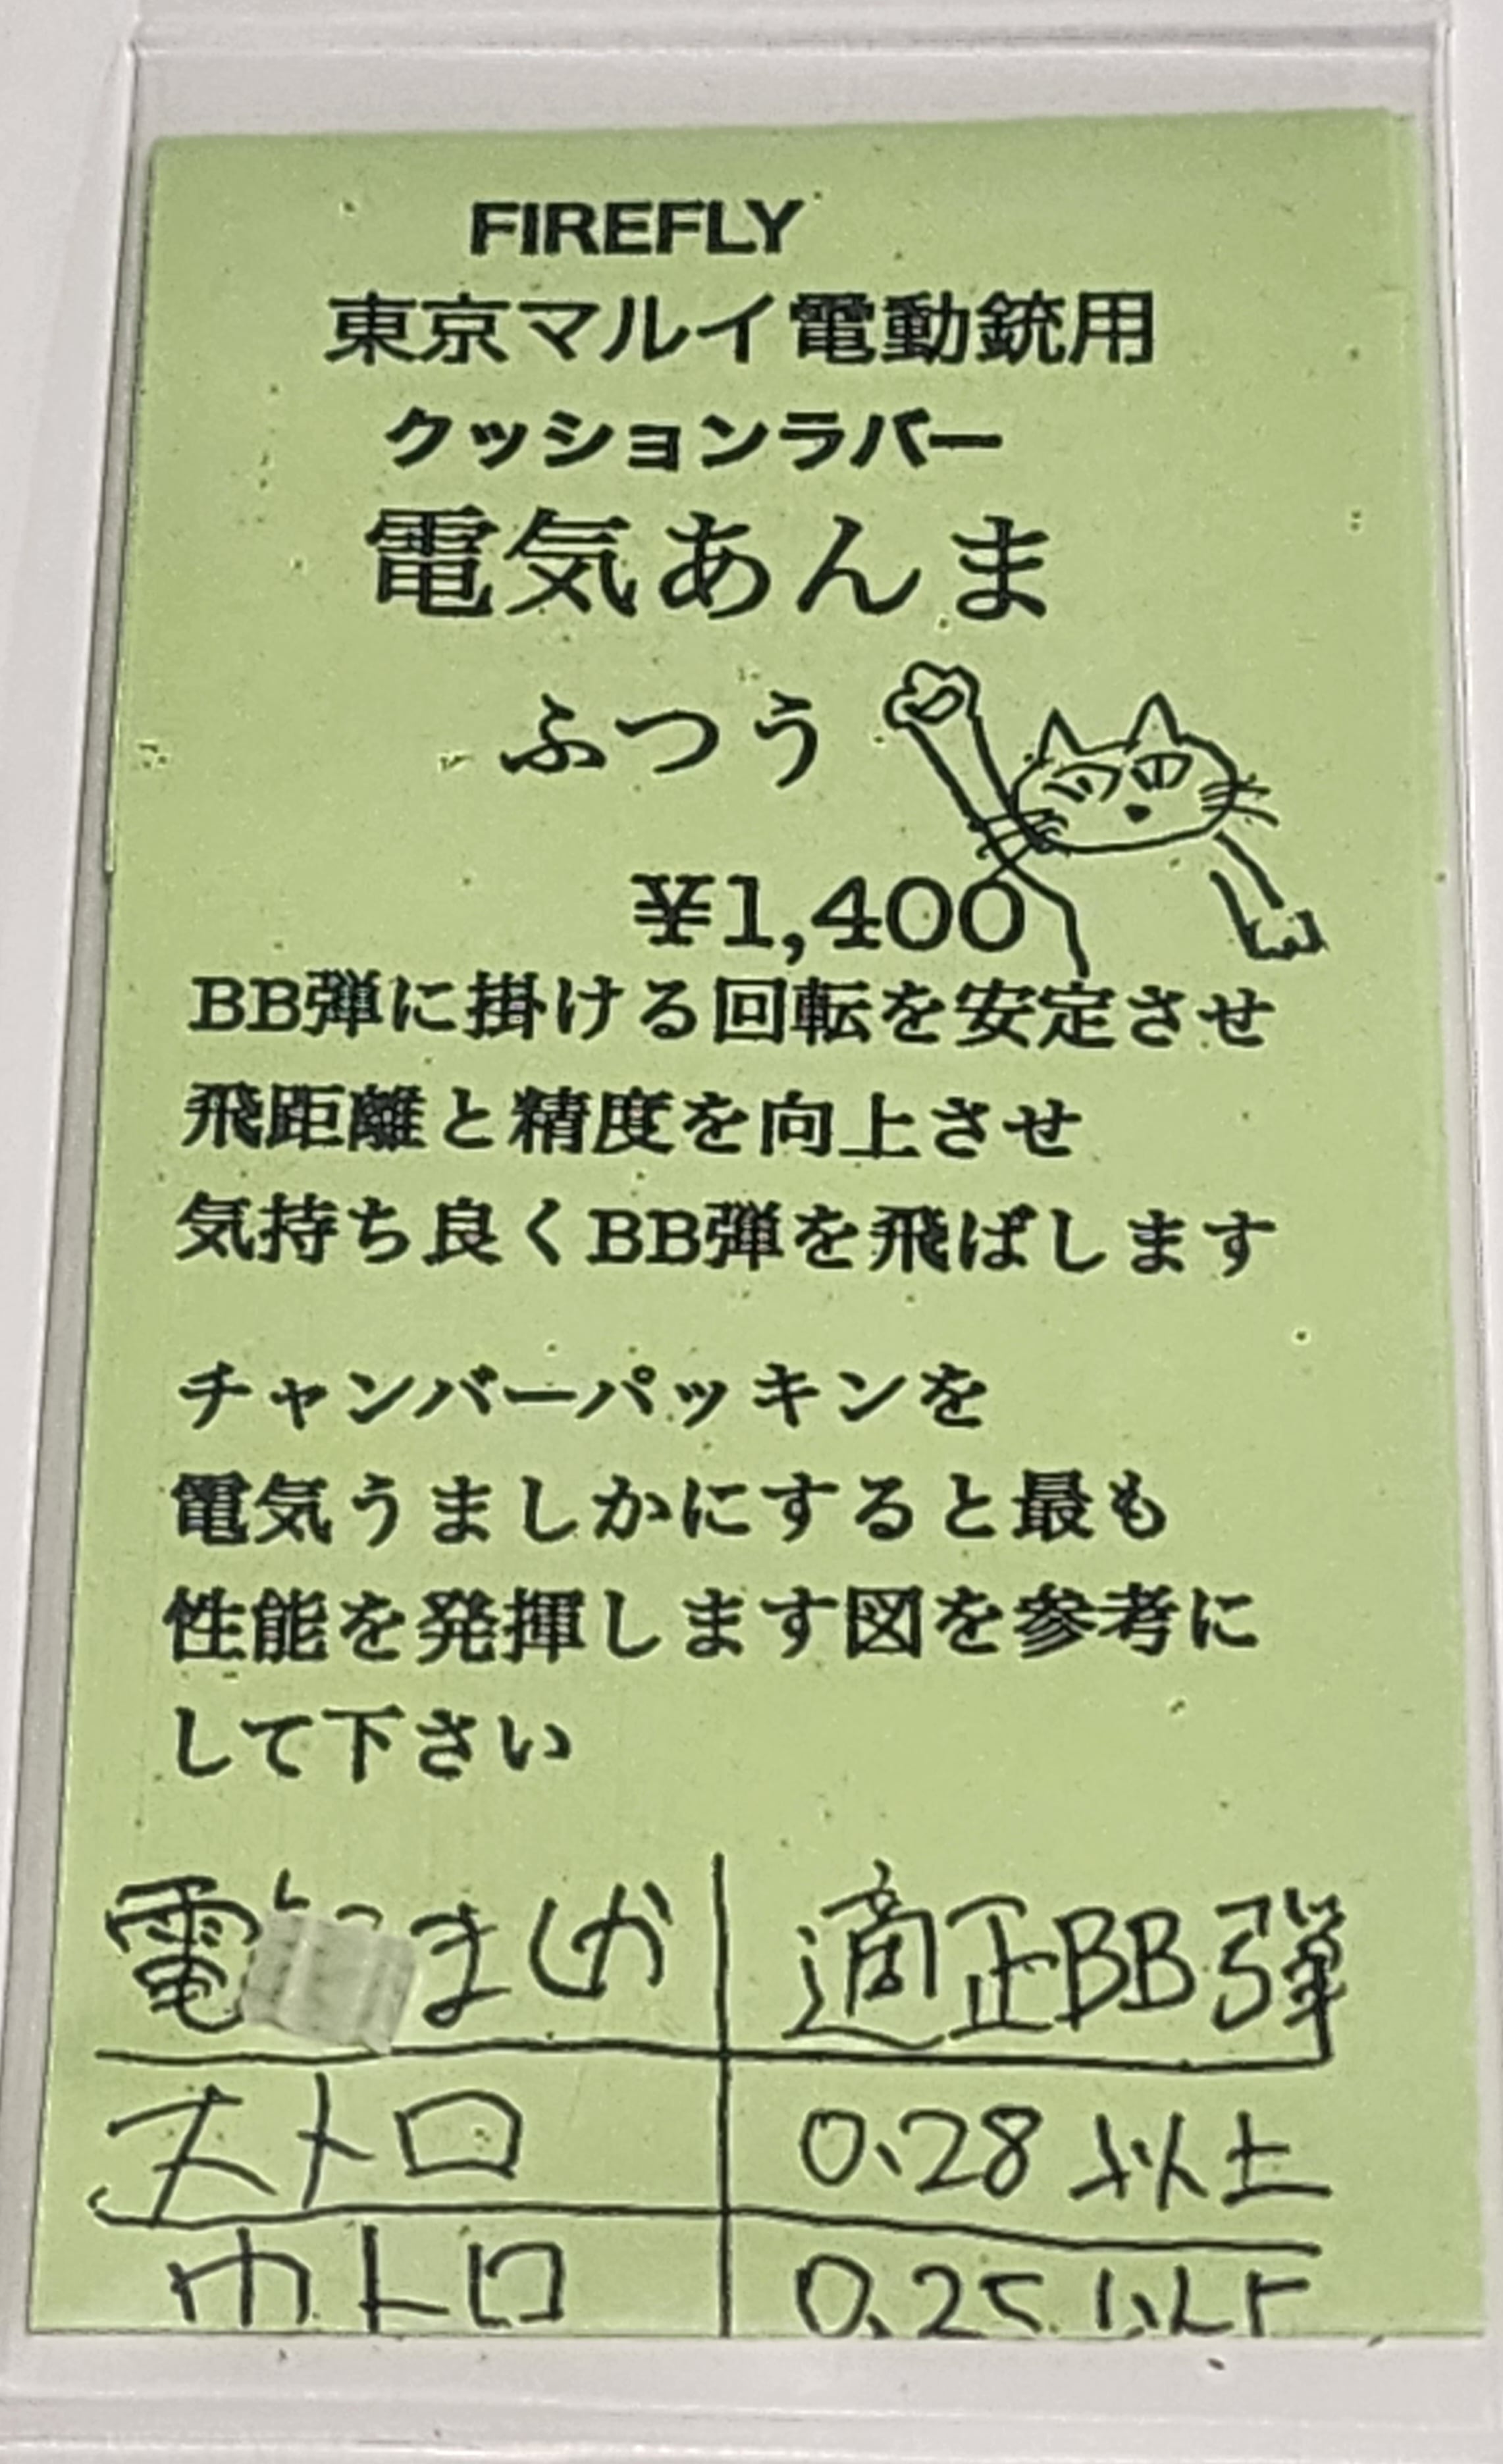 FIREFLY
東京マルイ電動銃用
クッションラバー
電気あんま
ふつう
¥1,400
BB弾に掛ける回転を安定させ
飛距離と精度を向上させ
気持ち良くBB弾を飛ばします
チャンバーパッキンを
電気うましかにすると最も
性能を発揮します図を参考に
して下さい
電 ましか 適正BB弾
大トロ 0.28以上
中トロ